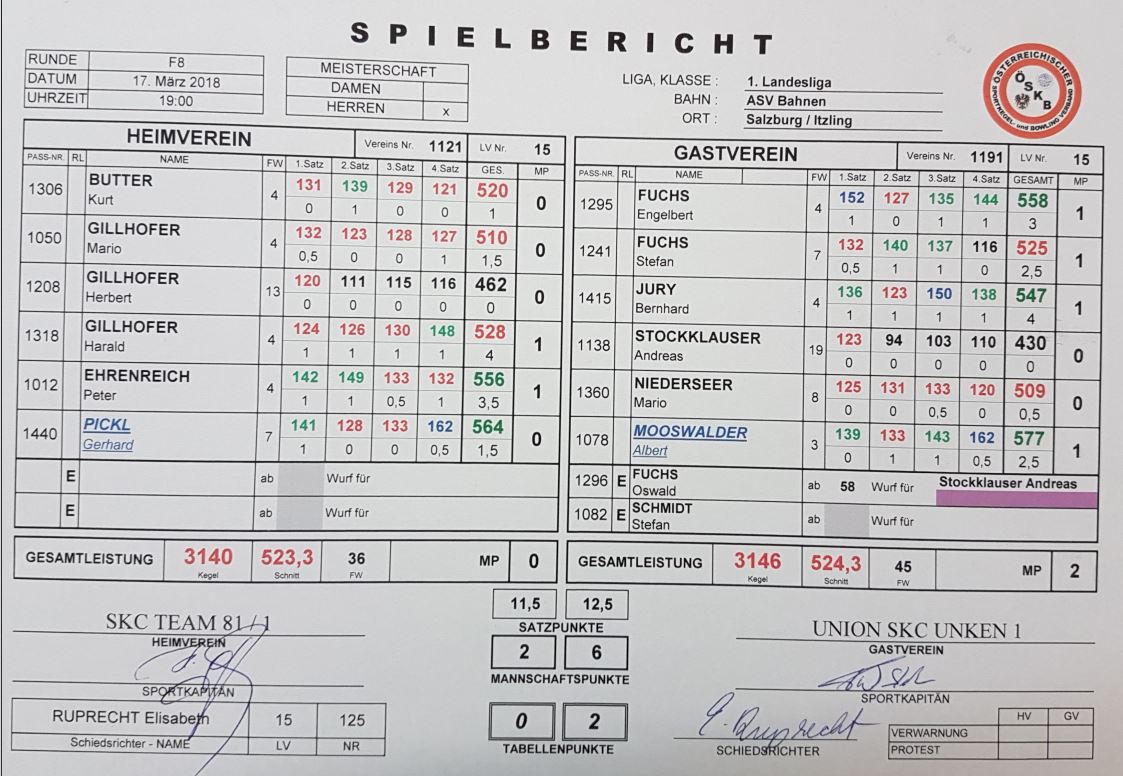 SPIELBERICHT
RUNDE F8
DATUM 17. März 2018
UHRZEIT 19:00
MEISTERSCHAFT
DAMEN
HERREN x
LIGA, KLASSE : 1. Landesliga
BAHN : ASV Bahnen
ORT : Salzburg / Itzling
ÖSTERREICHISCHER SPORTKEGEL- und BOWLING VERBAND
ÖSKB
HEIMVEREIN Vereins Nr. 1121 LV Nr. 15
PASS-NR. RL NAME FW 1.Satz 2.Satz 3.Satz 4.Satz GES. MP
1306 BUTTER 4 131 139 129 121 520 0
Kurt 0 1 0 0 1
1050 GILLHOFER 4 132 123 128 127 510 0
Mario 0,5 0 0 1 1,5
1208 GILLHOFER 13 120 111 115 116 462 0
Herbert 0 0 0 0 0
1318 GILLHOFER 4 124 126 130 148 528 1
Harald 1 1 1 1 4
1012 EHRENREICH 4 142 149 133 132 556 1
Peter 1 1 0,5 1 3,5
1440 PICKL 7 141 128 133 162 564 0
Gerhard 1 0 0 0,5 1,5
E ab Wurf für
E ab Wurf für
GESAMTLEISTUNG 3140 523,3 36 MP 0
Kegel Schnitt FW
GASTVEREIN Vereins Nr. 1191 LV Nr. 15
PASS-NR. RL NAME FW 1.Satz 2.Satz 3.Satz 4.Satz GESAMT MP
1295 FUCHS 4 152 127 135 144 558 1
Engelbert 1 0 1 1 3
1241 FUCHS 7 132 140 137 116 525 1
Stefan 0,5 1 1 0 2,5
1415 JURY 4 136 123 150 138 547 1
Bernhard 1 1 1 1 4
1138 STOCKKLAUSER 19 123 94 103 110 430 0
Andreas 0 0 0 0 0
1360 NIEDERSEER 8 125 131 133 120 509 0
Mario 0 0 0,5 0 0,5
1078 MOOSWALDER 3 139 133 143 162 577 1
Albert 0 1 1 0,5 2,5
1296 E FUCHS ab 58 Wurf für Stockklauser Andreas
Oswald
1082 E SCHMIDT ab Wurf für
Stefan
GESAMTLEISTUNG 3146 524,3 45 MP 2
Kegel Schnitt FW
11,5 12,5
SATZPUNKTE
2 6
MANNSCHAFTSPUNKTE
0 2
TABELLENPUNKTE
SKC TEAM 81 / 1
HEIMVEREIN
SPORTKAPITÄN
RUPRECHT Elisabeth 15 125
Schiedsrichter - NAME LV NR
UNION SKC UNKEN 1
GASTVEREIN
SPORTKAPITÄN
E. Ruprecht
SCHIEDSRICHTER
HV GV
VERWARNUNG
PROTEST